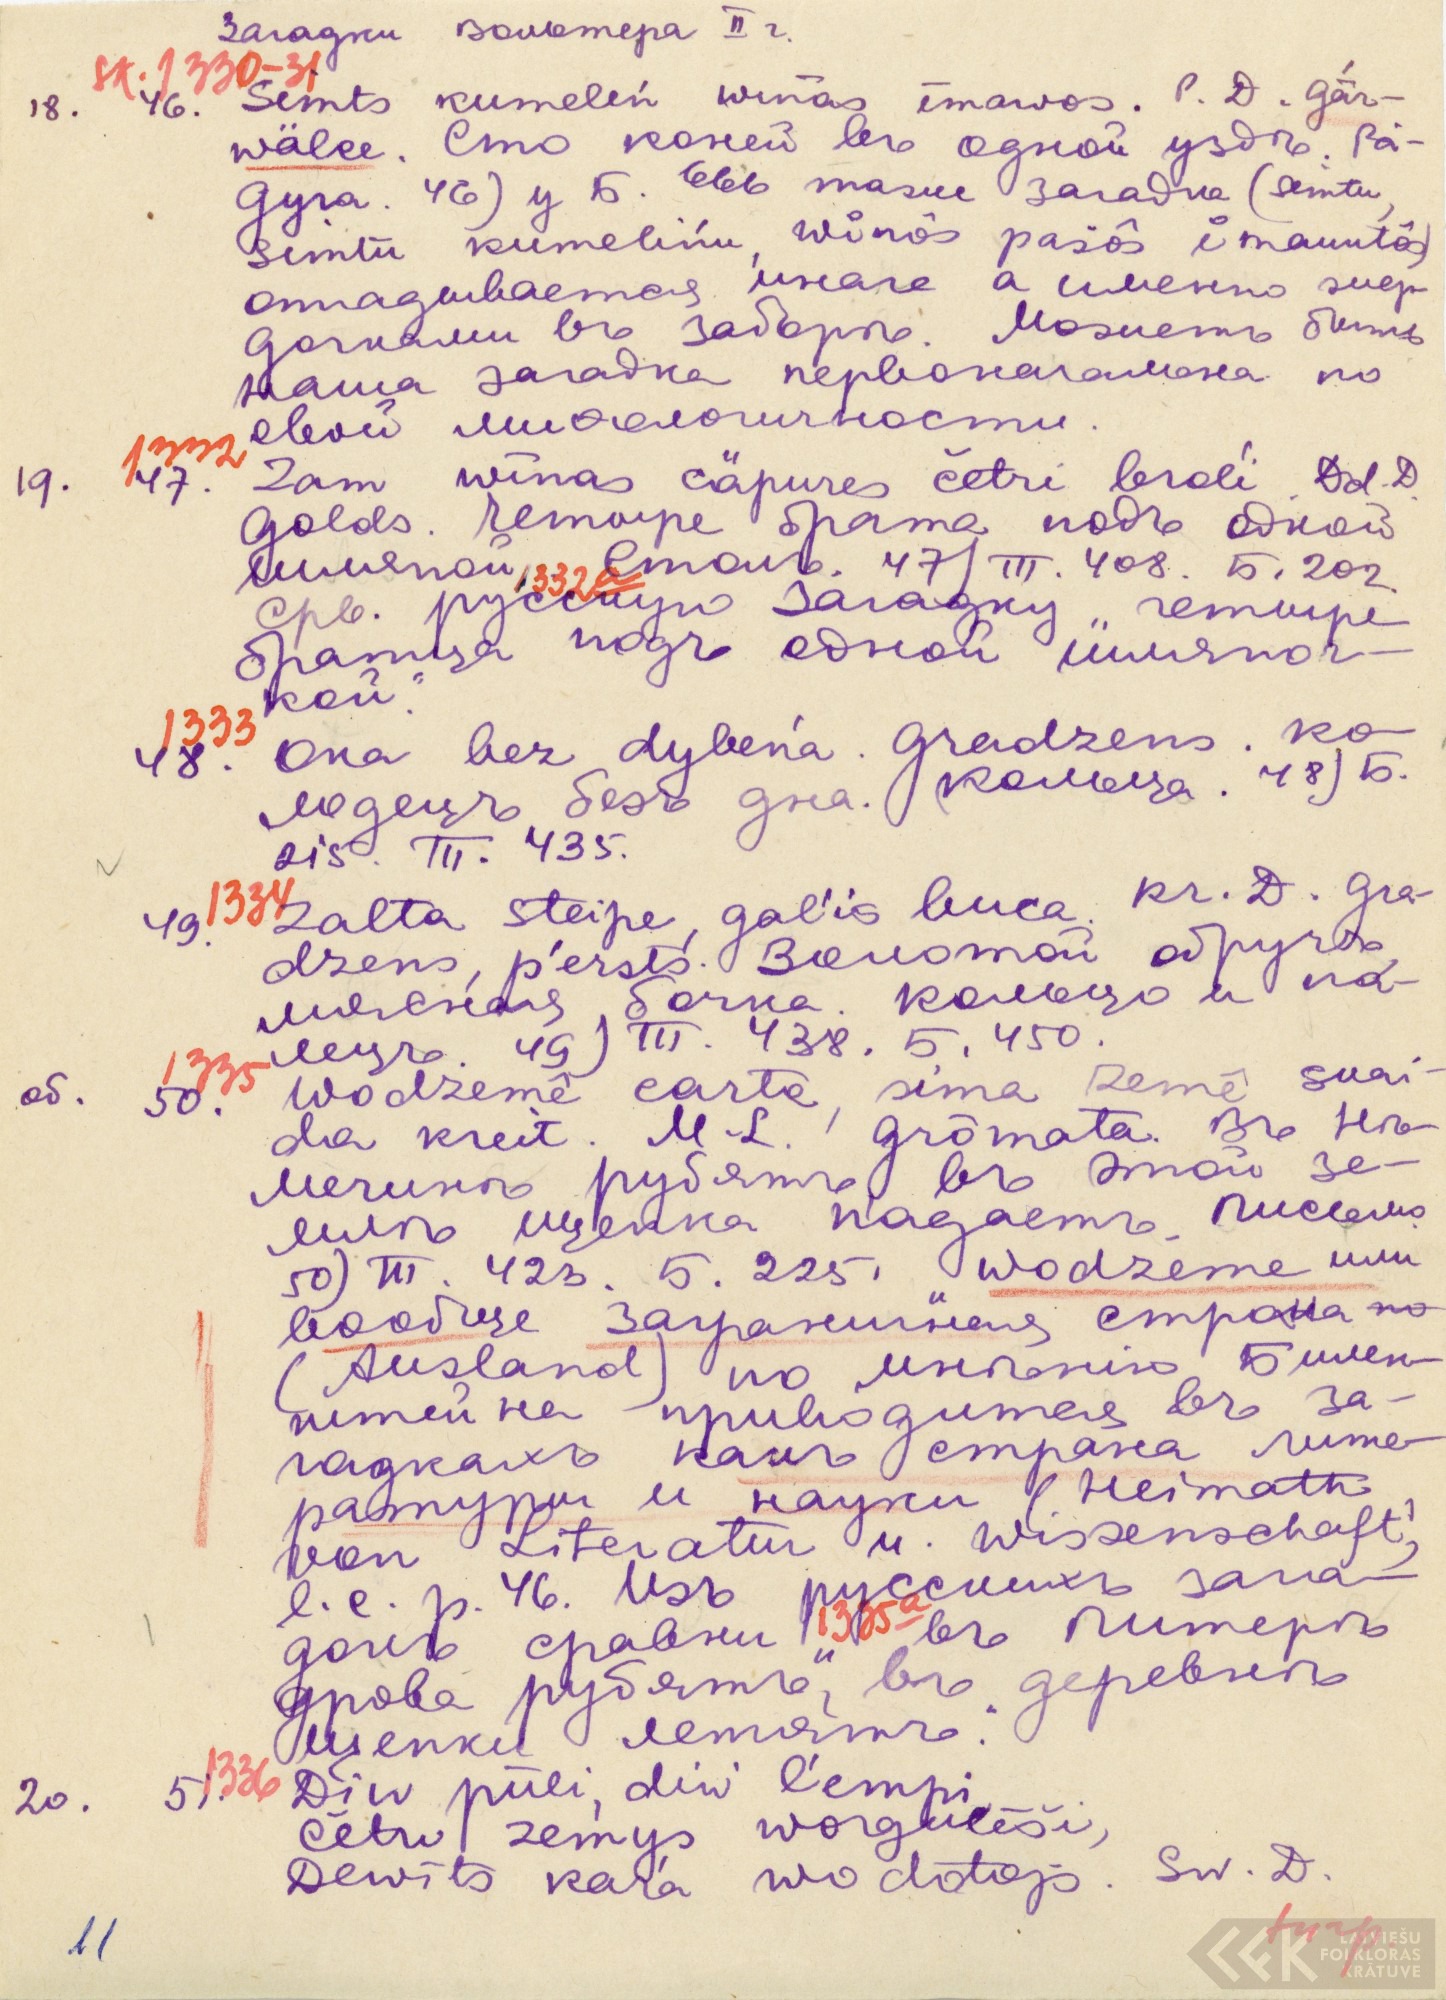 Загадки Вольтера II г.
sk. 1330-31
18. 46. Simts kumeleń winas īmawos. P. D. gár-
wälce. Сто коней въ одной уздѣ. Рá-
дуга. 46) у Б. 666 также загадка (simtu,
simtu kumelińu, winôs pašôs imauutôs)
отгадывается иначе а именно жер-
дочками въ заборѣ. Можетъ быть
наша загадка первоначальна по
своей миѳологичности.
1332
19. 47. Zam winas cäpures četri brāli. Dd. D.
Golds. Четыре брата подъ одной
шляпой. Столъ. 47) III. 408. Б. 202
1332a
Срв. русскую загадку „четыре
братца подъ одной шляпоч-
кой“.
1333
48. Oka bez dybeńa. Gradzens. Ко-
лодецъ безъ дна. Кольца. 48) Б.
215. III. 435.
1334
49. Zalta steipe, gal'is buca. Kr. D. Gra-
dzens, p'ersts. Золотой обручъ,
мясная бочка. Кольцо и па-
лецъ. 49) III. 438. Б. 450.
1335
об. 50. Wodzemē carte, sima zemê skai-
da kreit. M. L. grōmata. Въ Нѣ-
мечинѣ рубятъ въ этой зе-
млѣ щепка падаетъ. Письмо.
50) III. 423. Б. 225. Wodzeme или
вообще заграничная страна по
(Ausland) по мнѣнію Билен-
штейна приводится въ за-
гадкахъ какъ страна лите-
ратуры и науки (Heimath
von Literatur u. Wissenschaft),
l. c. p. 46. Изъ русскихъ зага-
1335a
докъ сравни „въ Питерѣ
дрова рубятъ, въ деревнѣ
щепки летятъ“.
1336
20. 51. Diw pīli, diw l'empi,
Četri zemys worguleiši,
Dewīts kara wodōtojs. Sw. D.
turp.
11
LATVIEŠU
FOLKLORAS
KRĀTUVE